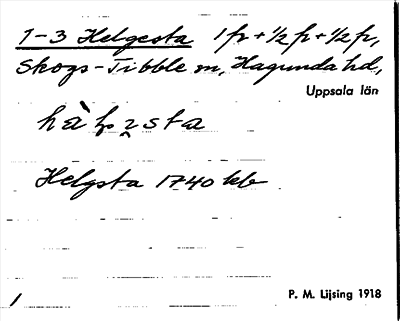 1-3 Helgesta 1 fr + 1/2 fr + 1/2 fr,
Skogs-Tibble sn, Hagunda hd,
Uppsala län
Helgsta 1740 kb
P. M. Lijsing 1918
1